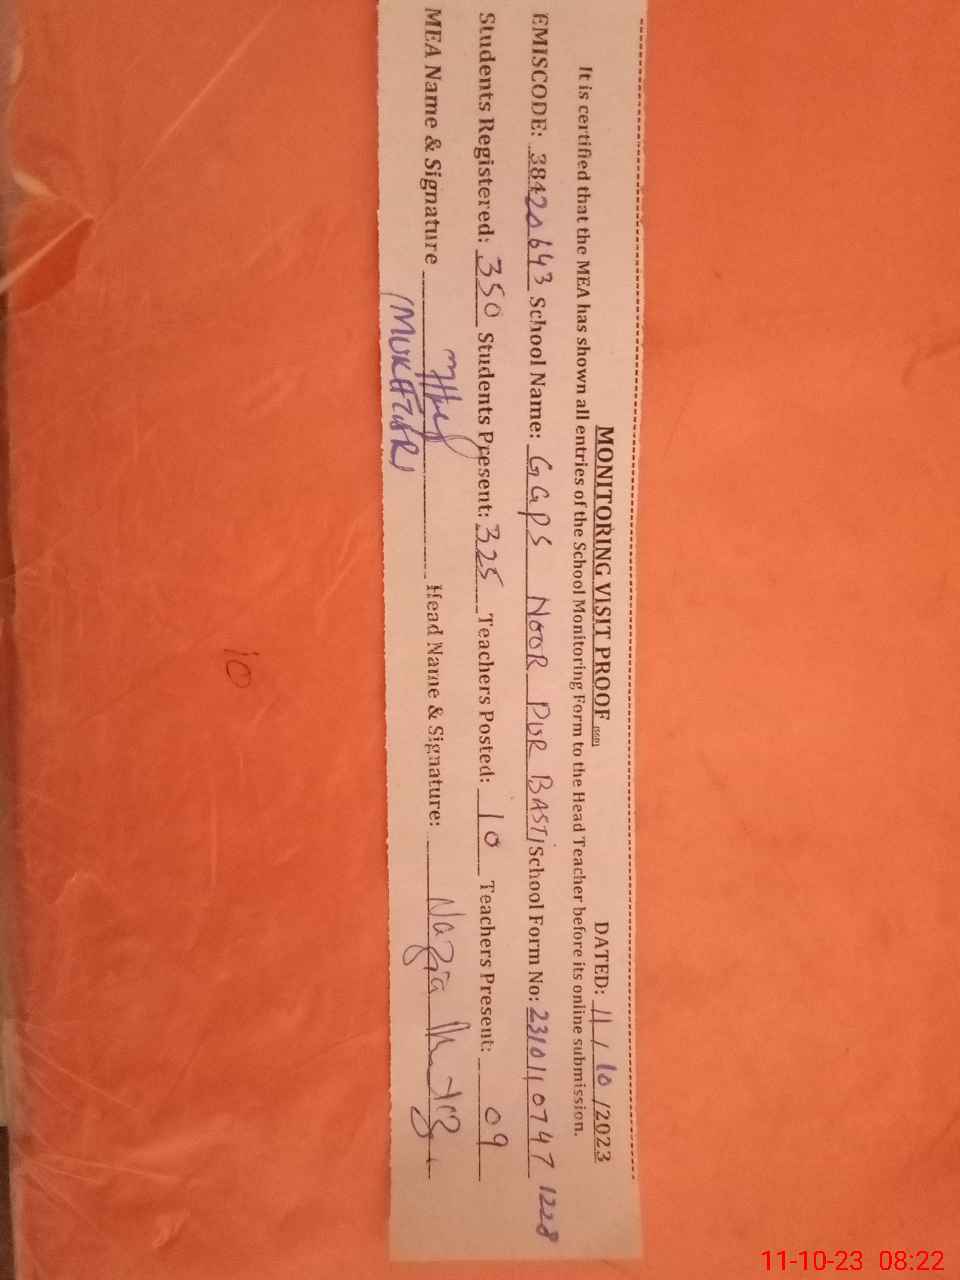 MONITORING VISIT PROOF DATED: 11/10/2023
It is certified that the MEA has shown all entries of the School Monitoring Form to the Head Teacher before its online submission.
EMISCODE: 38420643 School Name: GGPS NOOR PUR BASTi School Form No: 23101107471228
Students Registered: 350 Students Present: 325 Teachers Posted: 10 Teachers Present: 09
MEA Name & Signature Head Name & Signature: Nazia
10
11-10-23 08:22